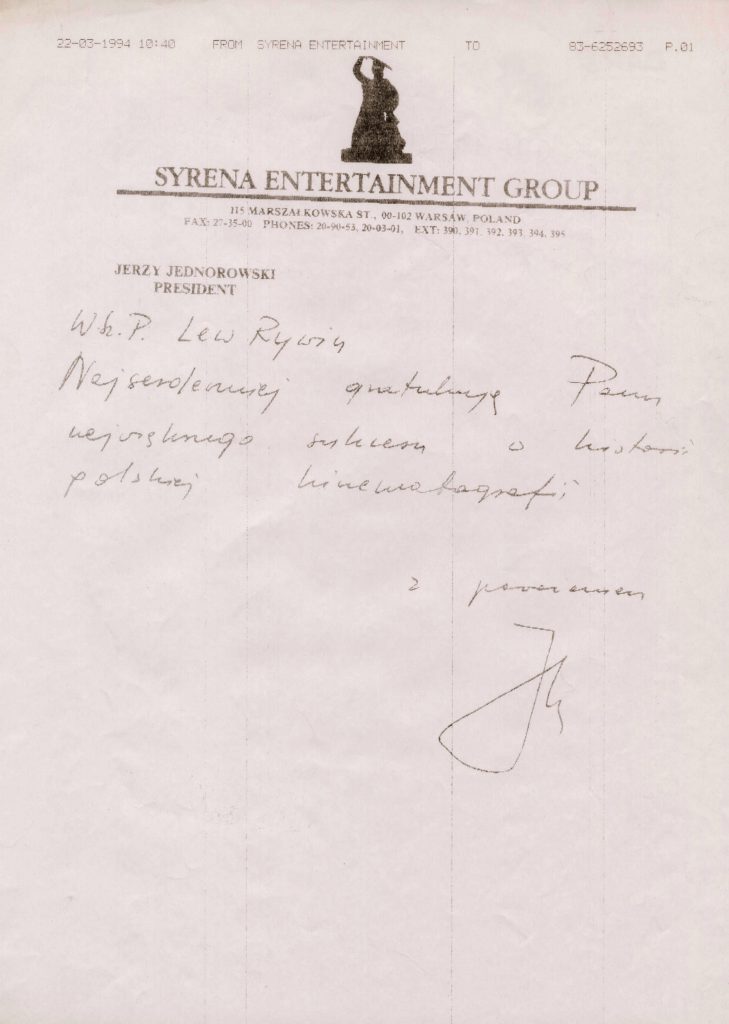 22-03-1994 10:40 FROM SYRENA ENTERTAINMENT TO 83-6252693 P.01
SYRENA ENTERTAINMENT GROUP
115 MARSZAŁKOWSKA ST., 00-102 WARSAW, POLAND
FAX: 27-35-00 PHONES: 20-90-53, 20-03-01, EXT: 390, 391, 392, 393, 394, 395
JERZY JEDNOROWSKI
PRESIDENT
W.Sz.P. Lew Rywin
Najserdeczniej gratuluję Panu
największego sukcesu w historii
polskiej kinematografii
z poważaniem